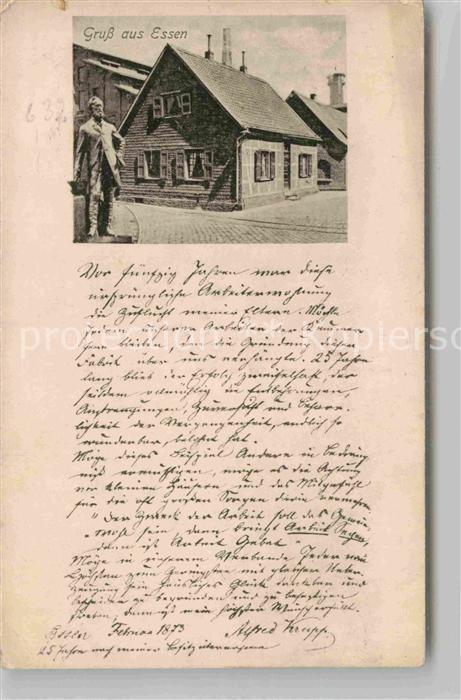 Gruß aus Essen
Vor fünfzig Jahren war diese
ursprüngliche Arbeiterwohnung
die Zuflucht meiner Eltern. Möchte
jedem unserer Arbeiter der Kummer
fern bleiben, den die Gründung dieser
Fabrik über uns verhängte. 25 Jahre
lang blieb der Erfolg zweifelhaft, der
seitdem allmählig die Entbehrungen,
Anstrengungen, Zuversicht und Beharr-
lichkeit der Vergangenheit endlich so
wunderbar belohnt hat.
Möge dieses Beispiel Andere in Bedräng-
niß ermuthigen, möge es die Achtung
vor kleinen Häusern und das Mitgefühl
für die oft großen Sorgen darin vermehren.
"Der Zweck der Arbeit soll das Gemein-
wohl sein, dann bringt Arbeit Segen,
dann ist Arbeit Gebet."
Möge in unserem Verbande Jeder vom
Höchsten zum Geringsten mit gleicher Ueber-
zeugung sein häusliches Glück dankbar und
bescheiden zu begründen und zu befestigen
streben, dann ist mein höchster Wunsch erfüllt.
Essen Februar 1873 Alfred Krupp.
25 Jahre nach meiner Besitzübernahme
protection